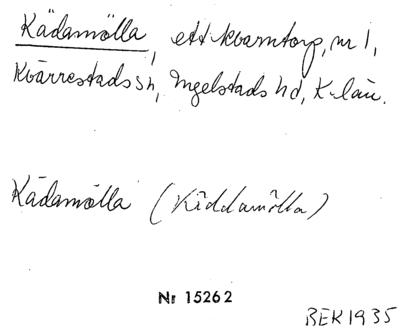 Kädamölla, ett kvarntorp, nr 1,
Kvärrestads sn, Ingelstads hd, K-län.
Kädamölla (Kiddamölla)
Nr 15262
BEK 1935